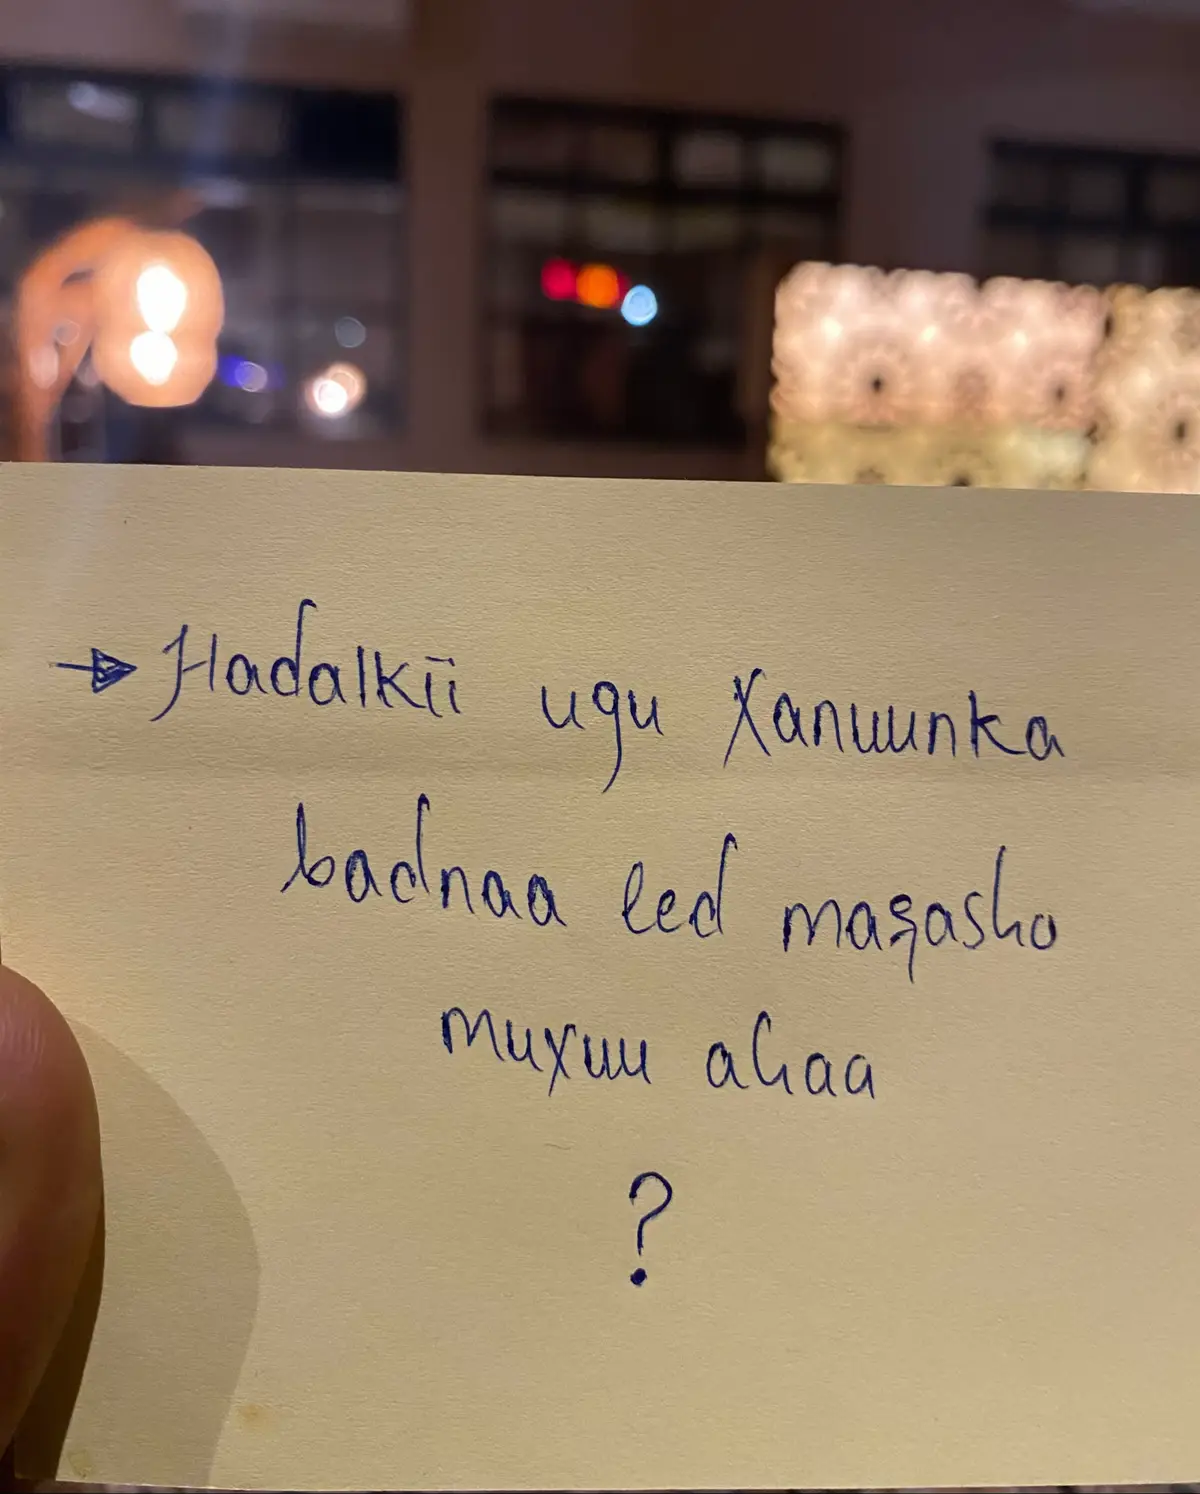 → Hadalkii ugu Xanuunka
badnaa eed maqasho
muxuu ahaa
?